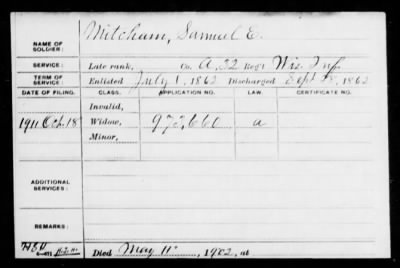 NAME OF SOLDIER: Mitcham, Samuel E.
SERVICE: Late rank, Co. A, 32 Reg't Wis. Inf.
TERM OF SERVICE: Enlisted July 1, 1862 Discharged Sept 8, 1862
DATE OF FILING. CLASS. APPLICATION NO. LAW. CERTIFICATE NO.
Invalid,
1911 Oct. 18 Widow, 973,660 a
Minor,
ADDITIONAL SERVICES:
REMARKS:
6-411
Died May 11, 1902, at